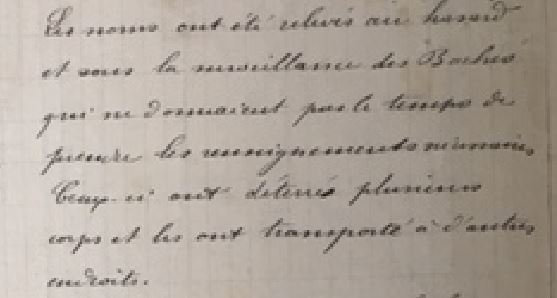 Les noms ont été relevés au hasard
et sous la surveillance des Boches
qui ne donnaient pas le temps de
prendre les renseignements nécessaires
Ceux-ci ont déterrés plusieurs
corps et les ont transporté à d'autres
endroits.